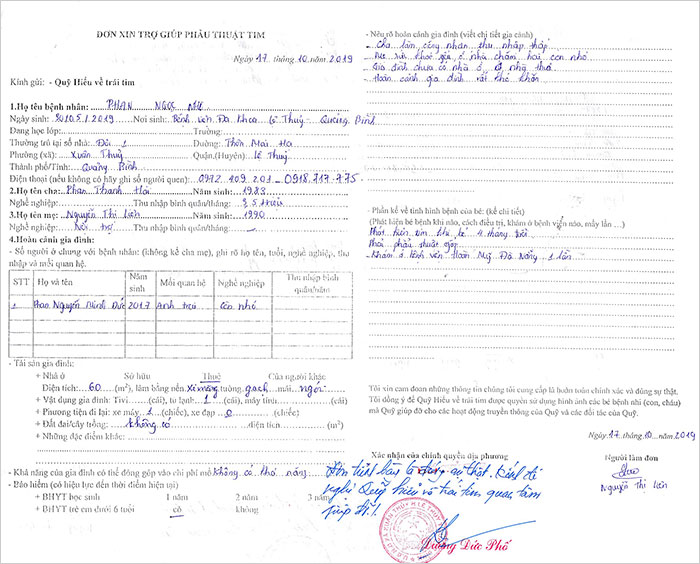 ĐƠN XIN TRỢ GIÚP PHẪU THUẬT TIM
Ngày 17 tháng 10 năm 2019
Kính gửi: - Quỹ Hiểu về trái tim
1.Họ tên bệnh nhân: PHAN NGỌC
Ngày sinh: 20/05/2019 Nơi sinh: Bệnh viện Đa Khoa Lệ Thuỷ - Quảng Bình
Đang học lớp: Trường:
Thường trú tại số nhà: Đội 1 Đường: Thôn Mai Hạ
Phường (xã): Xuân Thuỷ Quận (Huyện): Lệ Thuỷ
Thành phố/Tỉnh: Quảng Bình
Điện thoại (nếu không có hãy ghi số người quen): 0972 109 201 - 0918.717.775
2.Họ tên cha: Phan Thanh Hải Năm sinh: 1983
Nghề nghiệp: Thu nhập bình quân/tháng: 3,5 triệu
3.Họ tên mẹ: Nguyễn Thị Liên Năm sinh: 1990
Nghề nghiệp: Nội trợ Thu nhập bình quân/tháng:
4.Hoàn cảnh gia đình:
- Số người ở chung với bệnh nhân: (không kể cha mẹ), ghi rõ họ tên, tuổi, nghề nghiệp, thu
nhập và mối quan hệ.
STT Họ và tên Năm sinh Mối quan hệ Nghề nghiệp Thu nhập bình quân/năm
1 Phan Nguyễn Minh Đức 2017 Anh trai còn nhỏ
- Tài sản gia đình:
+ Nhà ở Sở hữu Thuê Của người khác
Diện tích: 60 (m²), làm bằng nền xi măng tường gạch mái ngói
+ Vật dụng gia đình: Tivi (cái), tủ lạnh 1 (cái), máy tính (cái)
+ Phương tiện đi lại: xe máy 1 (chiếc), xe đạp 0 (chiếc)
+ Đất đai/cây trồng: không có diện tích (m²)
+ Những đặc điểm khác:
- Khả năng của gia đình có thể đóng góp vào chi phí mổ không có khả năng
- Bảo hiểm (có hiệu lực đến thời điểm hiện tại)
+ BHYT học sinh 1 năm 2 năm 3 năm
+ BHYT trẻ em dưới 6 tuổi có không
- Nêu rõ hoàn cảnh gia đình (viết chi tiết gia cảnh)
- Cha làm công nhân thu nhập thấp
- Mẹ sức khoẻ yếu ở nhà chăm hai con nhỏ
- Gia đình chưa có nhà ở, ở nhà thuê
- Hoàn cảnh gia đình rất khó khăn
- Phần kể về tình hình bệnh của bé: (kể chi tiết)
(Phát hiện bệnh khi nào, cách điều trị, khám ở bệnh viện nào, mấy lần ...)
- Phát hiện tim khi bé 4 tháng tuổi
- Phải phẫu thuật gấp
- Khám ở bệnh viện Hoàn Mỹ Đà Nẵng 1 lần
Tôi xin cam đoan những thông tin chúng tôi cung cấp là hoàn toàn chính xác và đúng sự thật.
Tôi đồng ý để Quỹ Hiểu về trái tim được quyền sử dụng hình ảnh các bé bệnh nhi (con, cháu)
mà Quỹ giúp đỡ cho các hoạt động truyền thông của Quỹ và các đối tác của Quỹ.
Ngày 17 tháng 10 năm 2019
Xác nhận của chính quyền địa phương
Đơn trình bày là đúng sự thật. Kính đề
nghị Quỹ hiểu về trái tim quan tâm
giúp đỡ!
Dương Đức Phố
Người làm đơn
Nguyễn Thị Liên